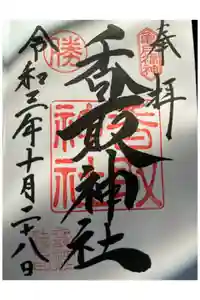 奉拝
亀戸福神
香取神社
香取神社
勝
令和三年十月二十八日